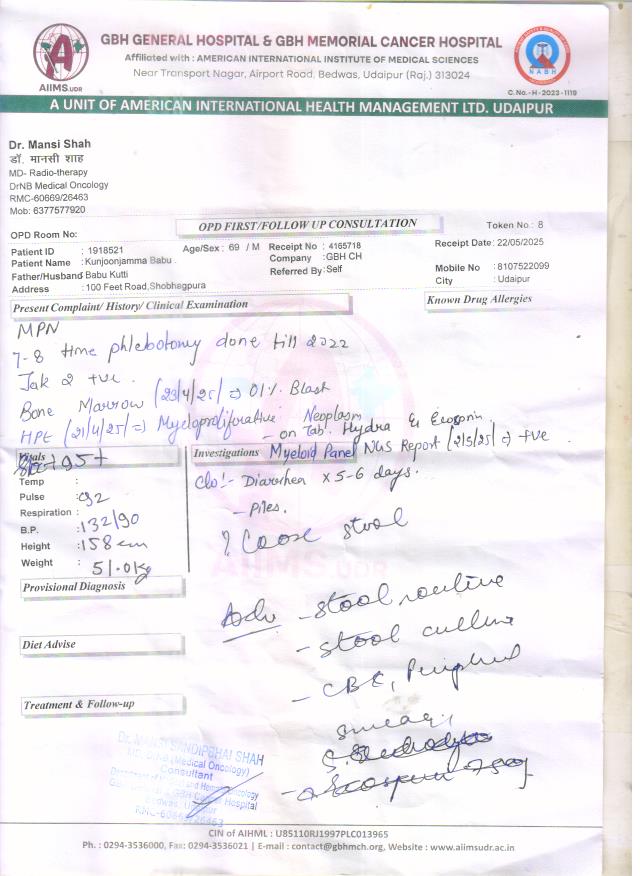 GBH GENERAL HOSPITAL & GBH MEMORIAL CANCER HOSPITAL
Affiliated with : AMERICAN INTERNATIONAL INSTITUTE OF MEDICAL SCIENCES
Near Transport Nagar, Airport Road, Bedwas, Udaipur (Raj.) 313024
AIIMS.UDR
NABH
C. No. - H - 2023 - 1119
A UNIT OF AMERICAN INTERNATIONAL HEALTH MANAGEMENT LTD. UDAIPUR
Dr. Mansi Shah
डॉ. मानसी शाह
MD- Radio-therapy
DrNB Medical Oncology
RMC-60669/26463
Mob: 6377577920
OPD FIRST/FOLLOW UP CONSULTATION
Token No. : 8
OPD Room No:
Patient ID : 1918521 Age/Sex : 69 / M Receipt No : 4165718 Receipt Date: 22/05/2025
Patient Name : Kunjoonjamma Babu . Company : GBH CH
Father/Husband Babu Kutti Referred By : Self Mobile No : 8107522099
Address : 100 Feet Road,Shobhegpura City : Udaipur
Present Complaint/ History/ Clinical Examination Known Drug Allergies
MPN
7-8 time phlebotomy done till 2022
Jak 2 +ve .
Bone Marrow (23/4/25) => 01% Blast
HPE (21/4/25) => Myeloproliferative Neoplasm
- on Tab. Hydra & Ecosprin
Vitals
Investigations Myeloid Panel NGS Report (2/5/25) => +ve .
Temp :
Pulse : 92
Respiration :
B.P. : 132/90
Height : 158 cm
Weight : 51.0kg
C/o :- Diarrhea x 5-6 days.
- Piles.
Loose stool
Provisional Diagnosis
Adv - stool routine
- stool culture
- CBC, Peripheral
smear,
Diet Advise
Treatment & Follow-up
Dr. MANSI SANDIPBHAI SHAH
MD, DrNB (Medical Oncology)
Consultant
RMC-60669/26463
CIN of AIHML : U85110RJ1997PLC013965
Ph. : 0294-3536000, Fax: 0294-3536021 | E-mail : contact@gbhmch.org, Website : www.aiimsudr.ac.in